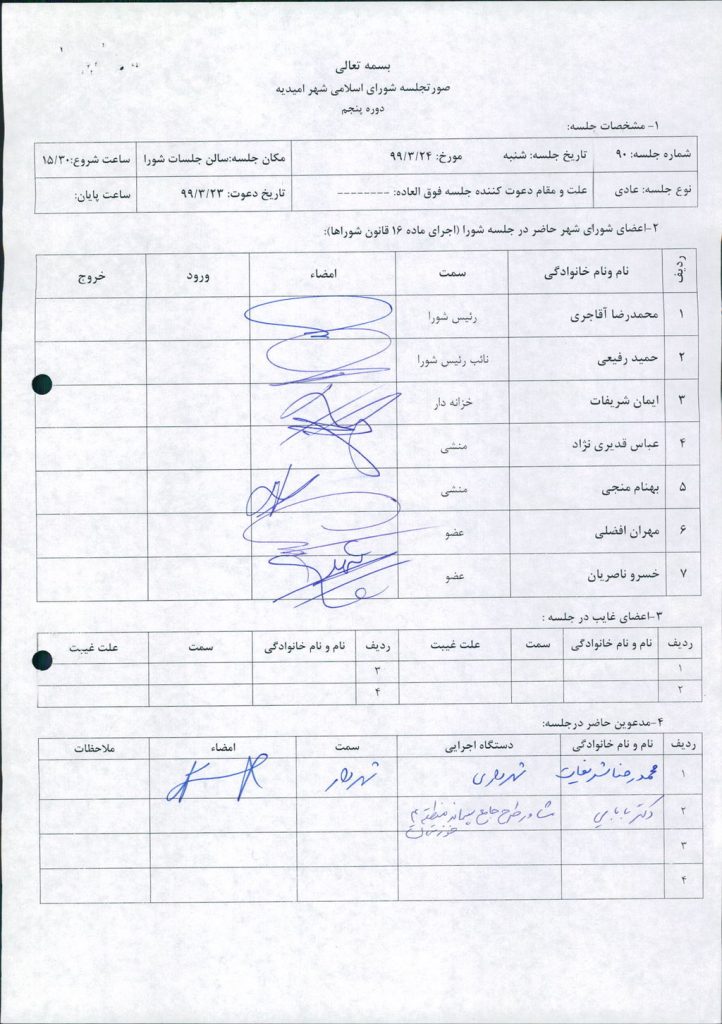 بسمه تعالی
صورتجلسه شورای اسلامی شهر امیدیه
دوره پنجم
۱- مشخصات جلسه:
شماره جلسه: ۹۰ تاریخ جلسه: شنبه مورخ: ۹۹/۳/۲۴ مکان جلسه:سالن جلسات شورا ساعت شروع:۱۵/۳۰
نوع جلسه: عادی علت و مقام دعوت کننده جلسه فوق العاده: -------- تاریخ دعوت: ۹۹/۳/۲۳ ساعت پایان:
۲-اعضای شورای شهر حاضر در جلسه شورا (اجرای ماده ۱۶ قانون شوراها):
ردیف نام ونام خانوادگی سمت امضاء ورود خروج
۱ محمدرضا آقاجری رئیس شورا
۲ حمید رفیعی نائب رئیس شورا
۳ ایمان شریفات خزانه دار
۴ عباس قدیری نژاد منشی
۵ بهنام منجی منشی
۶ مهران افضلی عضو
۷ خسرو ناصریان عضو
۳-اعضای غایب در جلسه :
ردیف نام و نام خانوادگی سمت علت غیبت ردیف نام و نام خانوادگی سمت علت غیبت
۱ ۳
۲ ۴
۴-مدعوین حاضر درجلسه:
ردیف نام و نام خانوادگی دستگاه اجرایی سمت امضاء ملاحظات
۱ محمدرضا شریفات شهرداری شهردار
۲ دکتر بابایی مشاور طرح جامع پسماند منطقه ۴
خوزستان
۳
۴